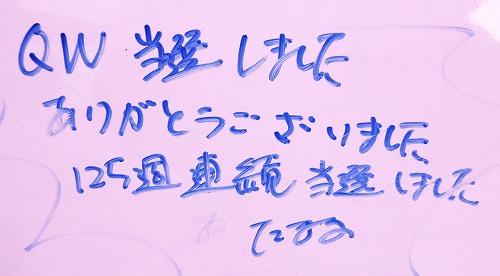 QW 当選しました
ありがとうございました
125週連続当選しました